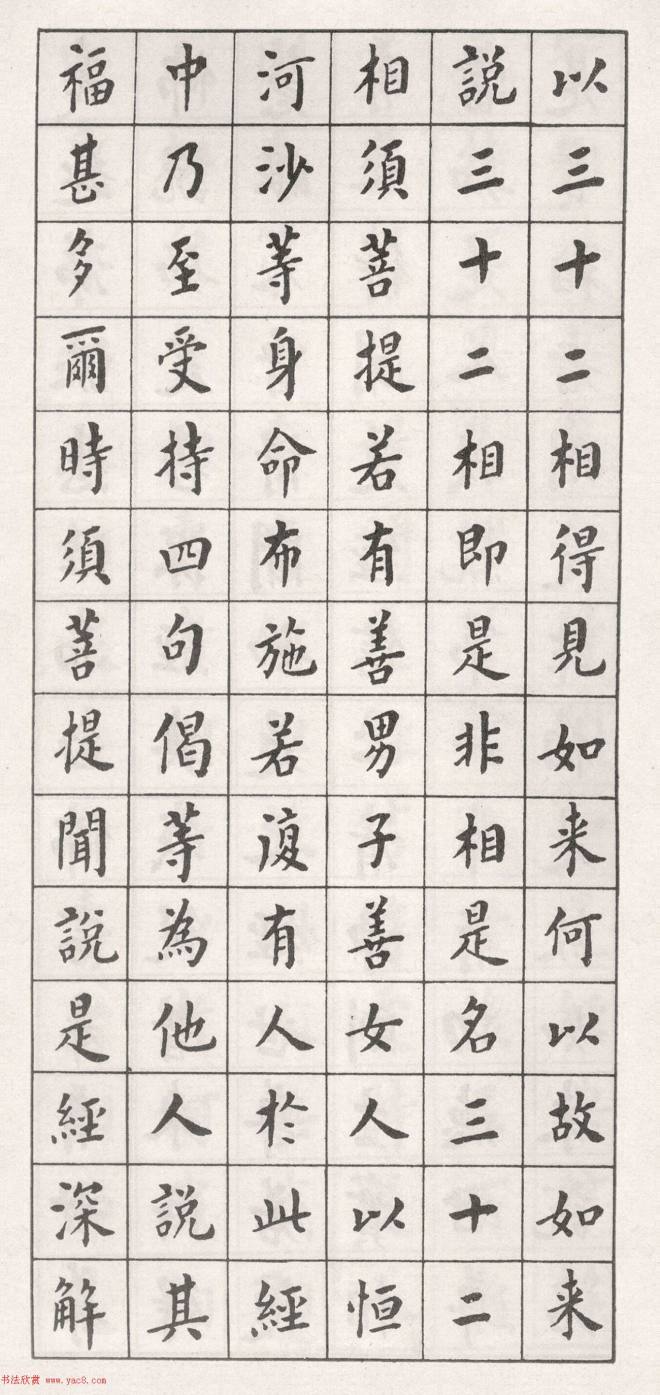 以三十二相得見如来何以故如来
說三十二相即是非相是名三十二
相須菩提若有善男子善女人以恒
河沙等身命布施若復有人於此經
中乃至受持四句偈等為他人說其
福甚多爾時須菩提聞說是經深解
书法欣赏 www.yac8.com